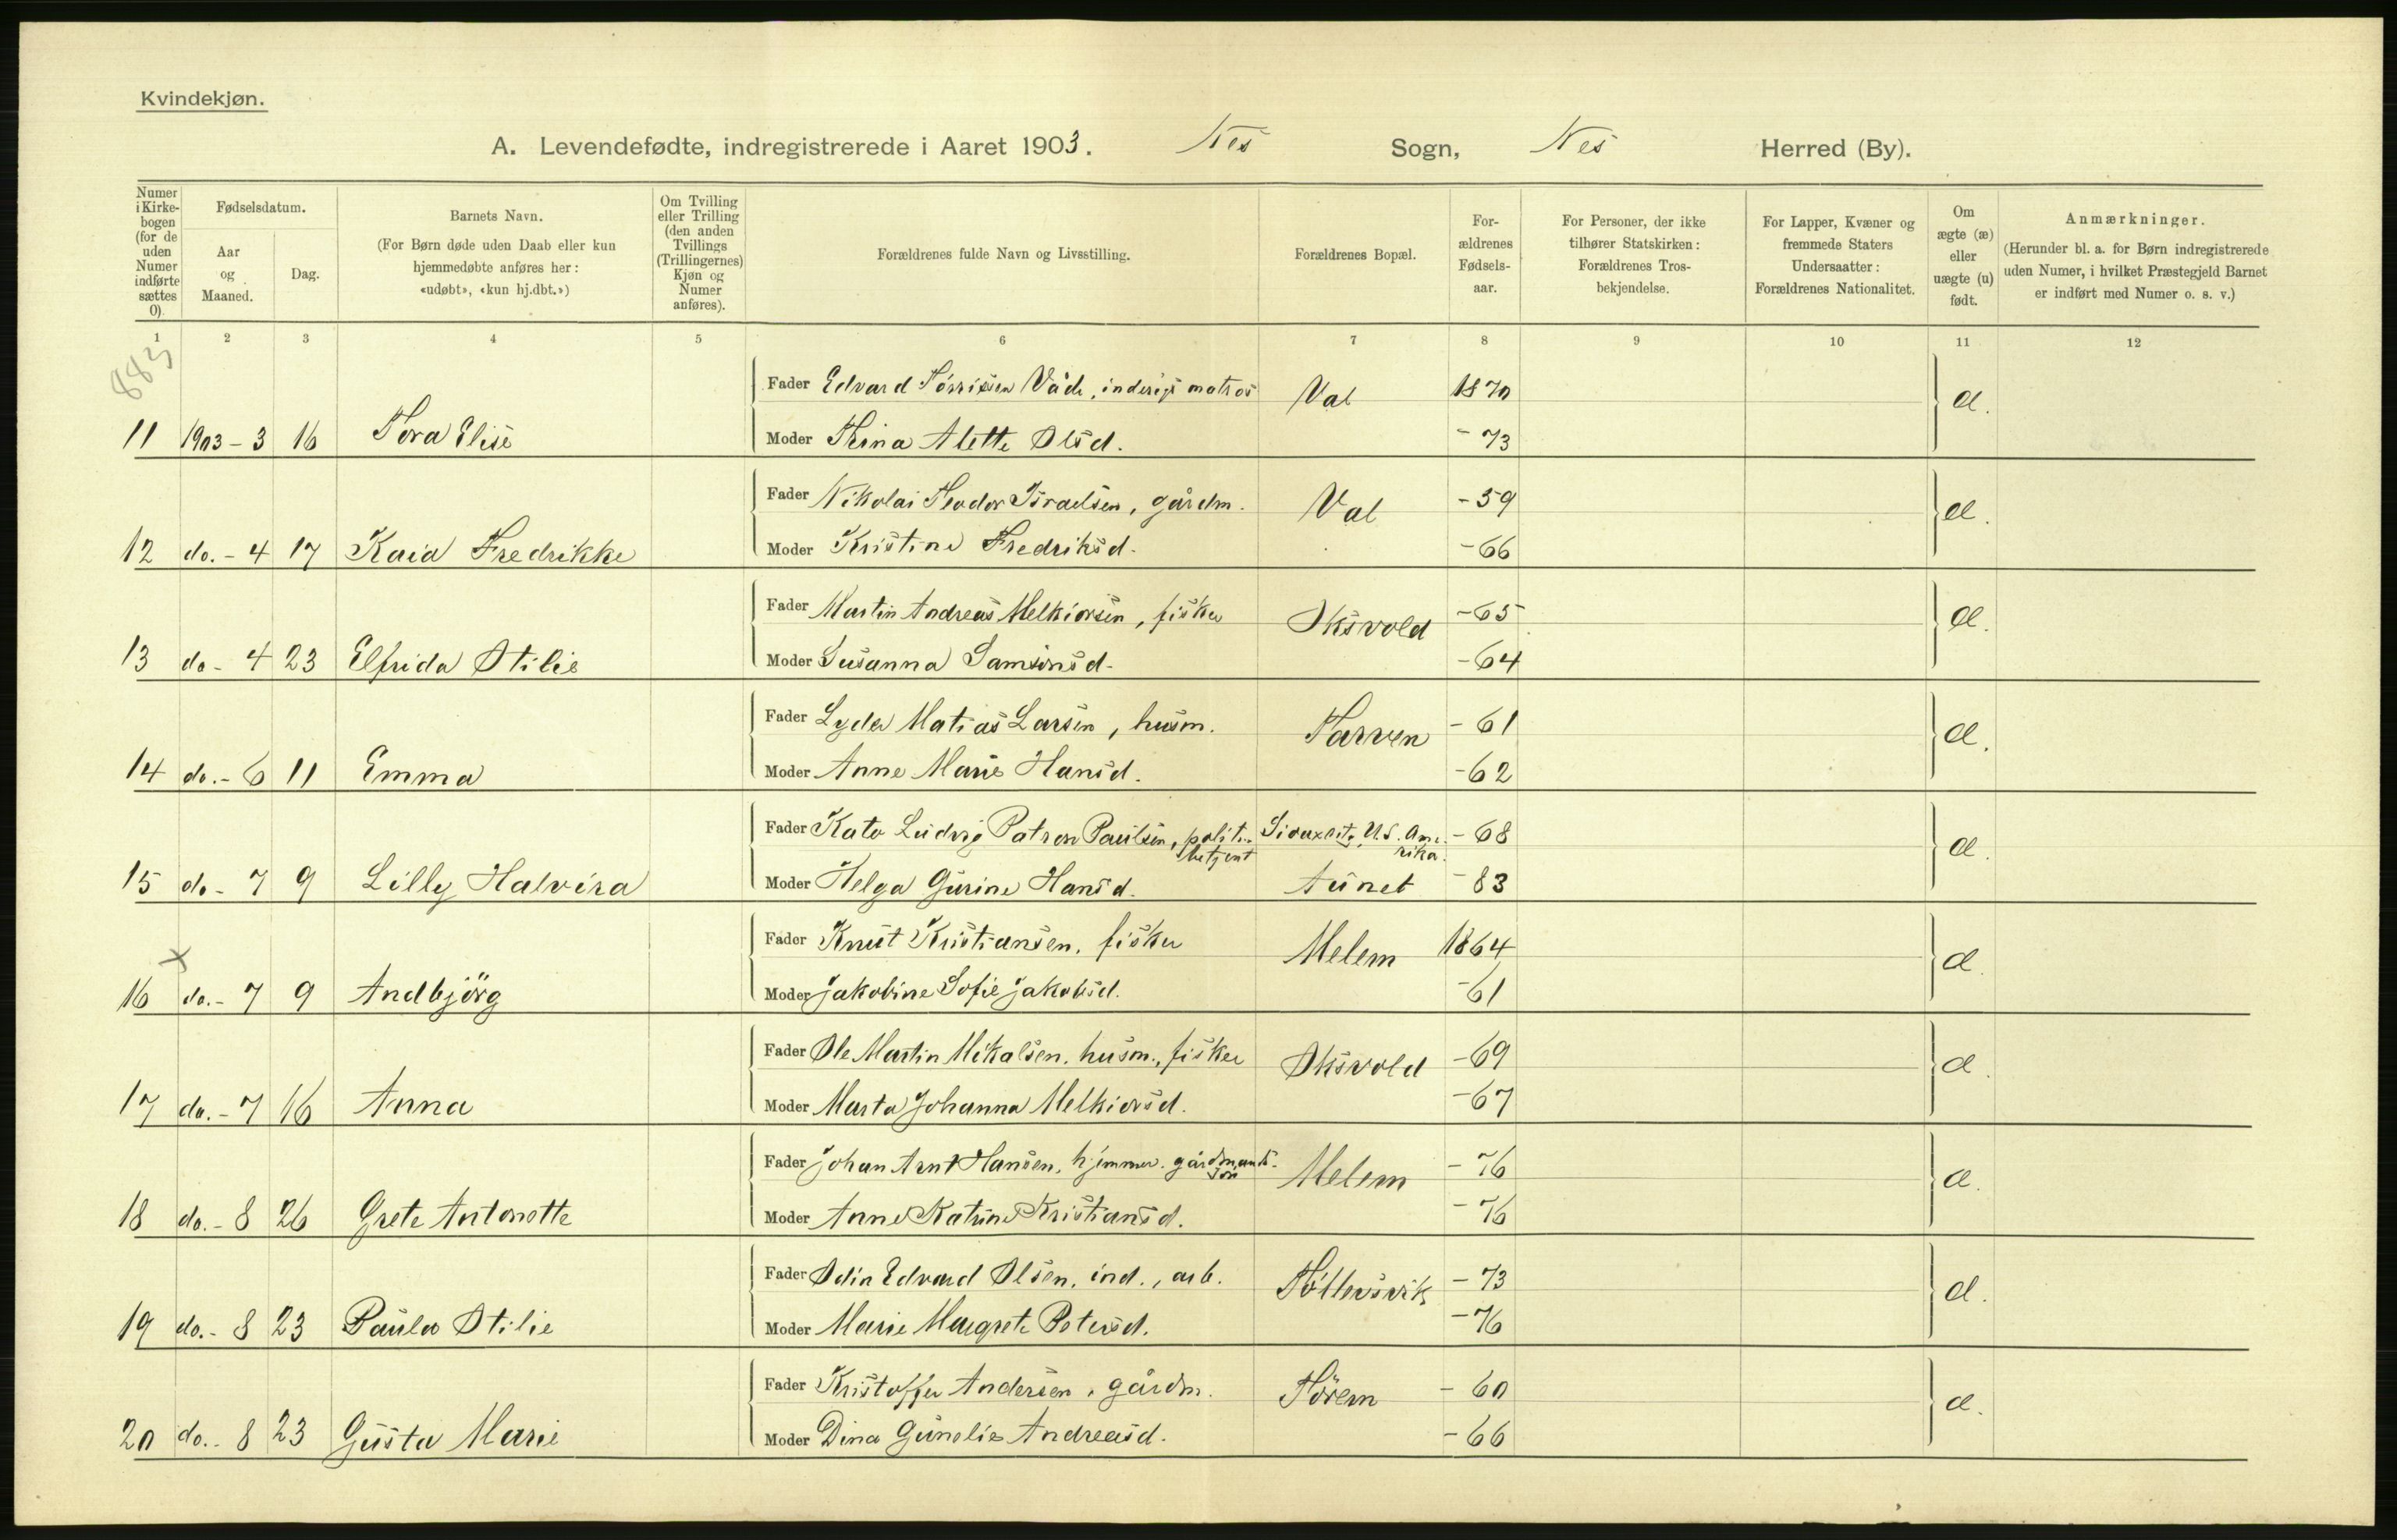 Kvindekjøn.
A. Levendefødte, indregistrerede i Aaret 1903. Nes Sogn, Nes Herred (By).
Numer i Kirkebogen (for de uden Numer indførte sættes 0).
Fødselsdatum.
Aar og Maaned.
Dag.
Barnets Navn.
(For Børn døde uden Daab eller kun hjemmedøbte anføres her: «udøbt», «kun hj.dbt.»)
Om Tvilling eller Trilling (den anden Tvillings (Trillingernes) Kjøn og Numer anføres).
Forældrenes fulde Navn og Livsstilling.
Forældrenes Bopæl.
Forældrenes Fødselsaar.
For Personer, der ikke tilhører Statskirken: Forældrenes Trosbekjendelse.
For Lapper, Kvæner og fremmede Staters Undersaatter: Forældrenes Nationalitet.
Om ægte (æ) eller uægte (u) født.
Anmærkninger.
(Herunder bl. a. for Børn indregistrerede uden Numer, i hvilket Præstegjeld Barnet er indført med Numer o. s. v.)
1 2 3 4 5 6 7 8 9 10 11 12
883
Fader Edvard Tørrissen Våde, matros Val 1870 æ.
11 1903-3 16 Tora Elise Moder Trina Alette Olsd. -73
Fader Nikolai Teodor Israelsen, gårdm. Val -59 æ.
12 do.-4 17 Kaia Fredrikke Moder Kristine Fredriksd. -66
Fader Martin Andreas Melkiorsen, fisker Oksvold -65 æ.
13 do-4 23 Elfrida Otilie Moder Susanna Samsonsd. -64
Fader Lyder Matias Larsen, husm. Tarven -61 æ.
14 do.-6 11 Emma Moder Anne Marie Hansd. -62
Fader Kato Ludvig Patron Paulsen, politibetjent Siouxcity U.S. Amerika. -68 æ.
15 do-7 9 Lilly Halvira Moder Helga Gurine Hansd. Aunet -83
Fader Knut Kristiansen, fisker Melem 1864 æ.
x
16 do.-7 9 Andbjörg Moder Jakobine Sofie Jakobsd. -61
Fader Ole Martin Mikalsen, husm., fisker Oksvold -69 æ.
17 do.-7 16 Anna Moder Marta Johanna Melkiorsd. -67
Fader Johan Arnt Hansen, hjemmev. gårdmands-søn Melem -76 æ.
18 do.-8 26 Grete Antonette Moder Anne Katrine Kristiansd. -76
Fader Odin Edvard Olsen, ind., arb. Töllevsvik -73 æ.
19 do.-8 23 Paula Otilie Moder Marie Margrete Petersd. -76
Fader Kristoffer Andersen, gårdm. Sörem -60 æ.
20 do.-8 23 Gusta Marie Moder Dina Gunelie Andreasd. -66